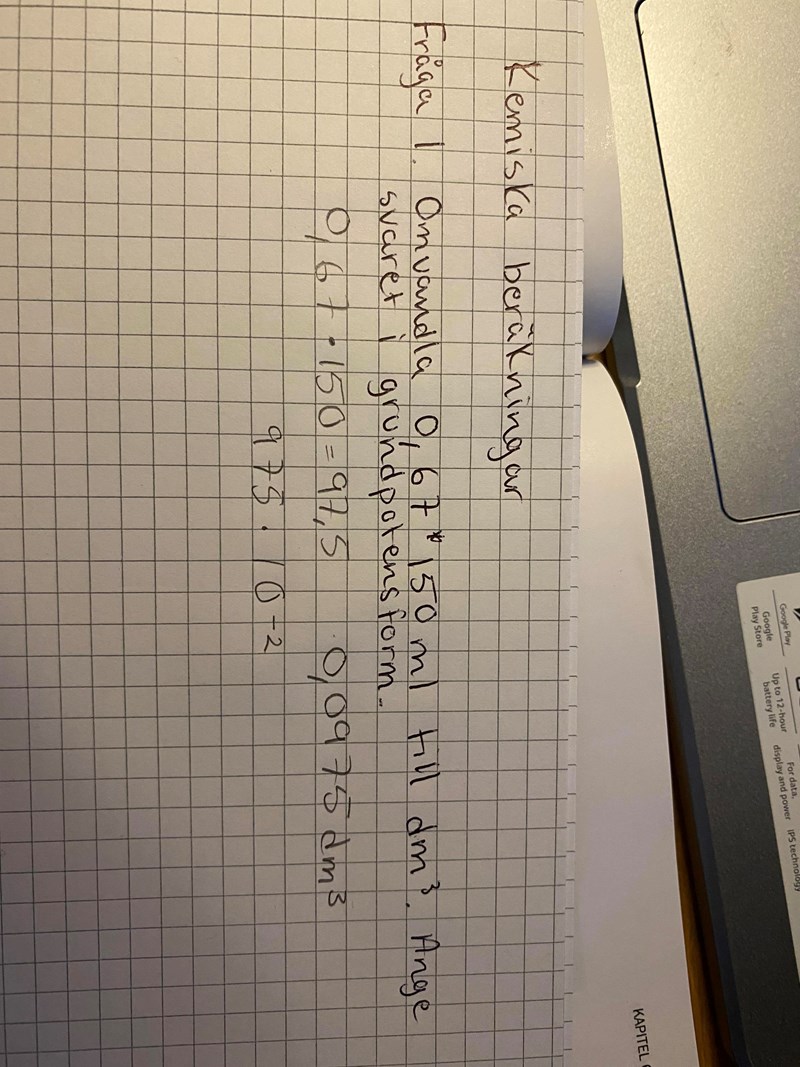 Kemiska beräkningar
Fråga 1. Omvandla 0,67*150 ml till dm³. Ange
svaret i grundpotensform.
0,67·150=97,5 0,0975 dm³
975·10⁻²
Google Play
Google
Play Store
Up to 12-hour
battery life
For data,
display and power
IPS technology
KAPITEL